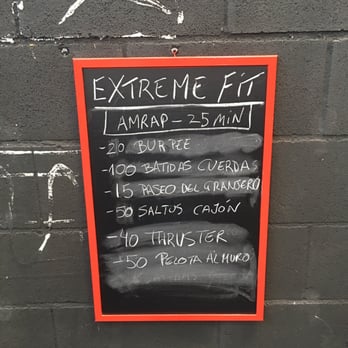 EXTREME FIT
AMRAP - 25 MIN
-20 BURPEE
-100 BATIDAS CUERDAS
-15 PASEO DEL GRANJERO
-50 SALTUS CAJÓN
-40 THRUSTER
-50 PELOTA AL MURO